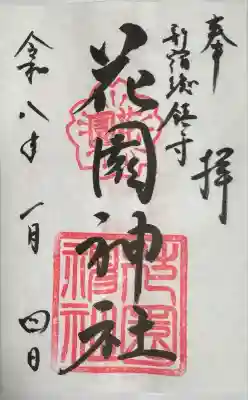 奉拝
新宿総鎮守
花園神社
令和八年 一月 四日